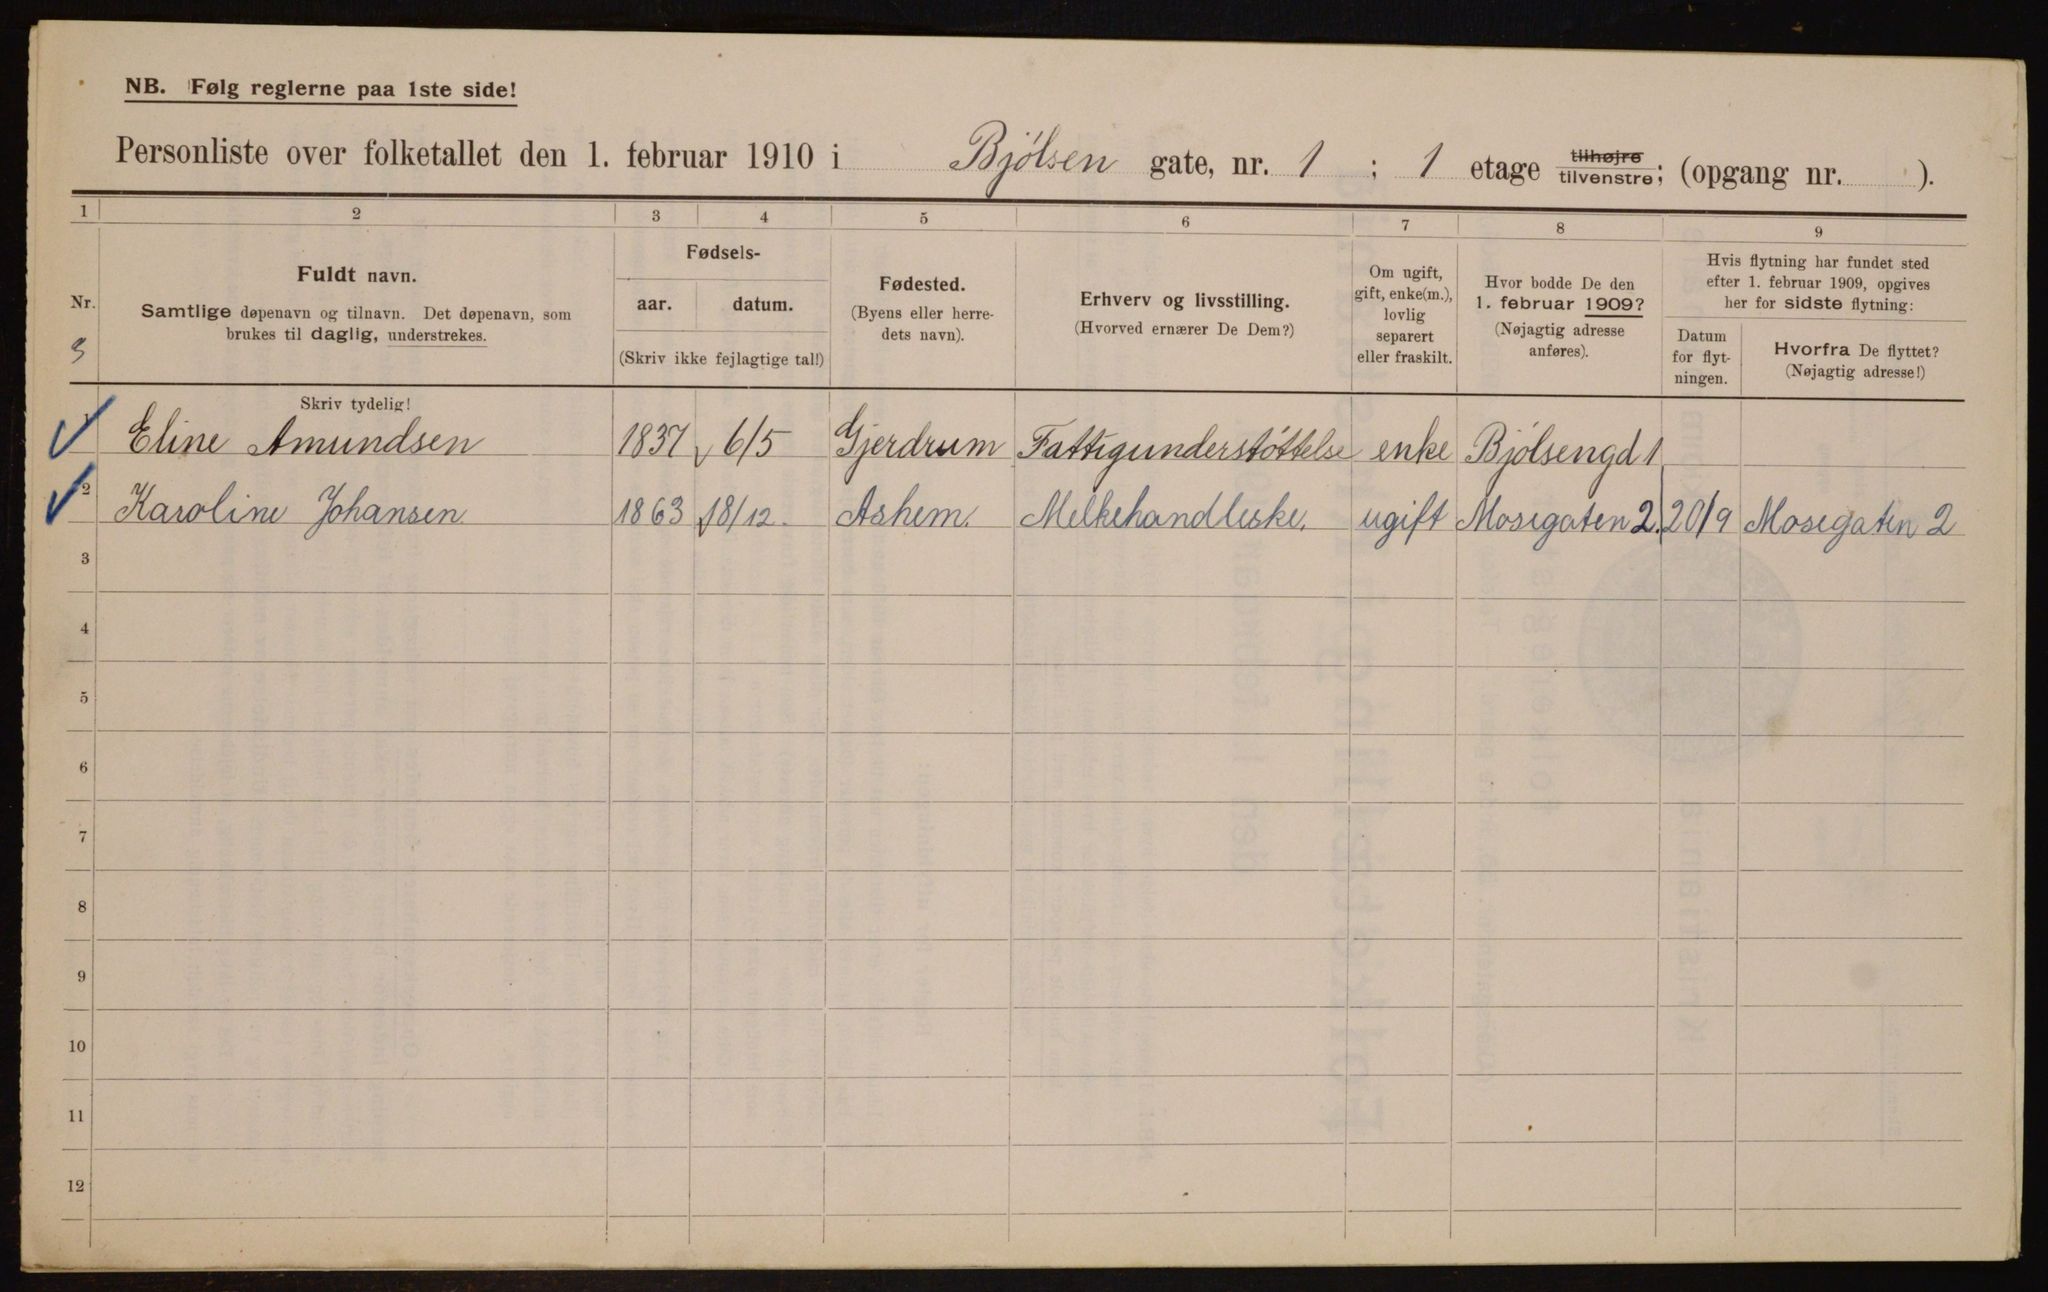 NB. Følg reglerne paa 1ste side!
Personliste over folketallet den 1. februar 1910 i Bjølsen gate, nr. 1 ; 1 etage tilhøjre tilvenstre; (opgang nr. ).
1 2 3 4 5 6 7 8 9
Nr.
3
Fuldt navn.
Samtlige døpenavn og tilnavn. Det døpenavn, som
brukes til daglig, understrekes.
Skriv tydelig!
Fødsels-
aar. datum.
(Skriv ikke fejlagtige tal!)
Fødested.
(Byens eller herre-
dets navn).
Erhverv og livsstilling.
(Hvorved ernærer De Dem?)
Om ugift,
gift, enke(m.),
lovlig
separert
eller fraskilt.
Hvor bodde De den
1. februar 1909?
(Nøjagtig adresse
anføres).
Hvis flytning har fundet sted
efter 1. februar 1909, opgives
her for sidste flytning:
Datum
for flyt-
ningen.
Hvorfra De flyttet?
(Nøjagtig adresse!)
1 Eline Amundsen 1837 6/5 Gjerdrum Fattigunderstøttelse enke Bjølsengd 1
2 Karoline Johansen 1863 18/12 Ashem. Melkehandleske. ugift Mosegaten 2. 20/9 Mosegaten 2
3
4
5
6
7
8
9
10
11
12